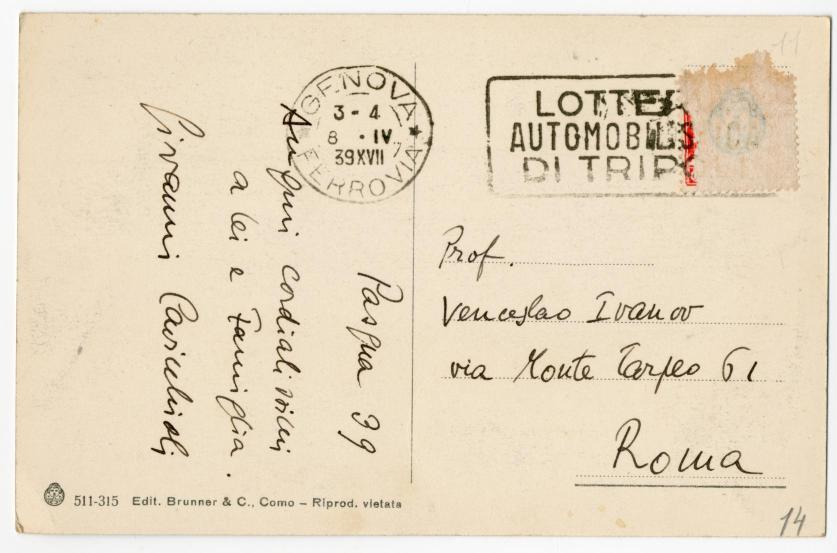 Pasqua 39
Auguri cordialissimi
a lei e Famiglia.
Giovanni Cavicchioli
GENOVA
3-4
8 · IV
39XVII
FERROVIA
7
LOTTE
AUTOMOBILIS
DI TRIPO
Prof.
Venceslao Ivanov
via Monte Tarpeo 61
Roma
511-315 Edit. Brunner & C., Como – Riprod. vietata
14
11